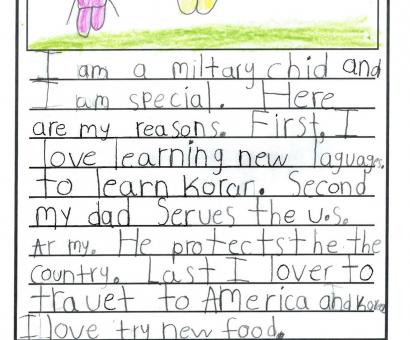 I am a miltary chid and
I am special. Here
are my reasons. First, I
love learning new laguages.
to learn Koran. Second
my dad Serves the U.S.
Ar my. He protects the the
country. Last I lover to
travet to America and Korea
I love try new food.